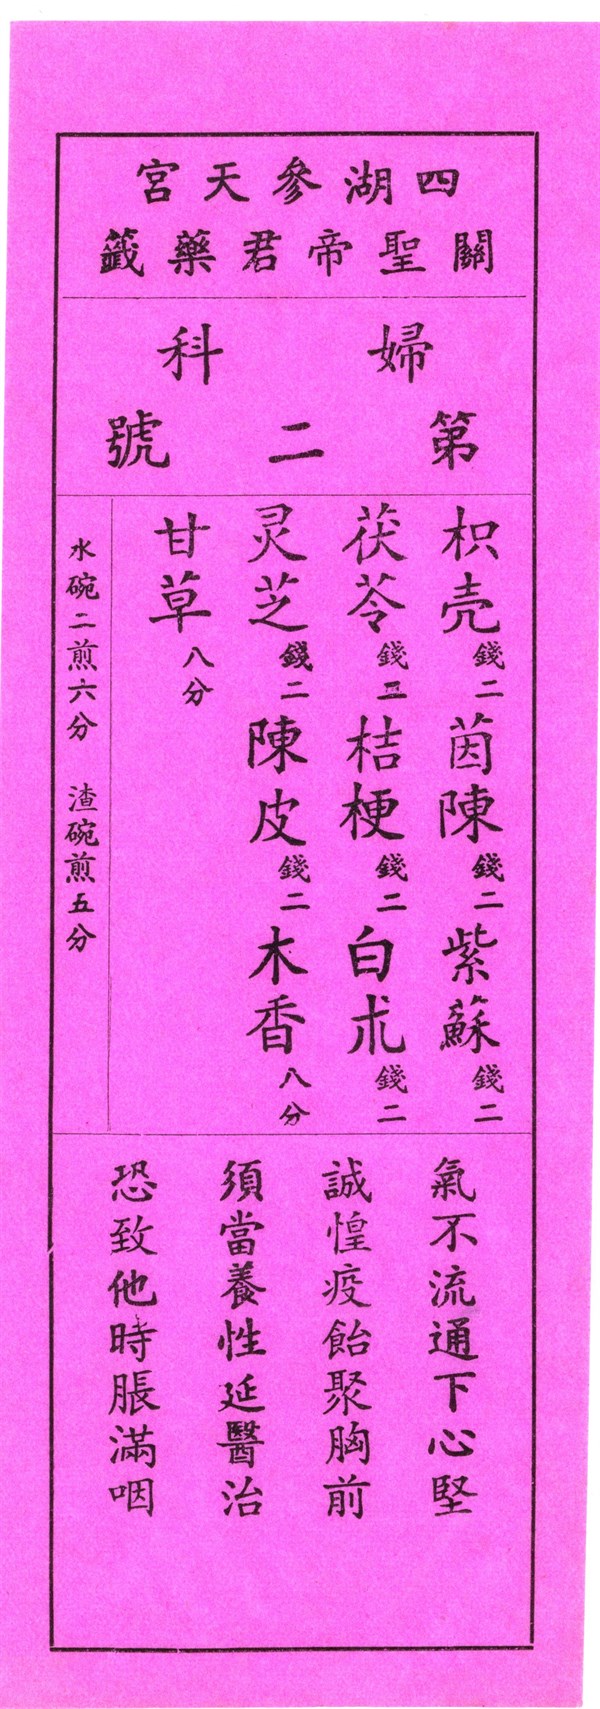 四湖參天宮
關聖帝君藥籤
婦科
第二號
枳壳錢二 茵陳錢二 紫蘇錢二
茯苓錢三 桔梗錢二 白朮錢二
灵芝錢二 陳皮錢二 木香八分
甘草八分
水碗二煎六分 渣碗煎五分
氣不流通下心堅
誠惶疫飴聚胸前
須當養性延醫治
恐致他時脹滿咽